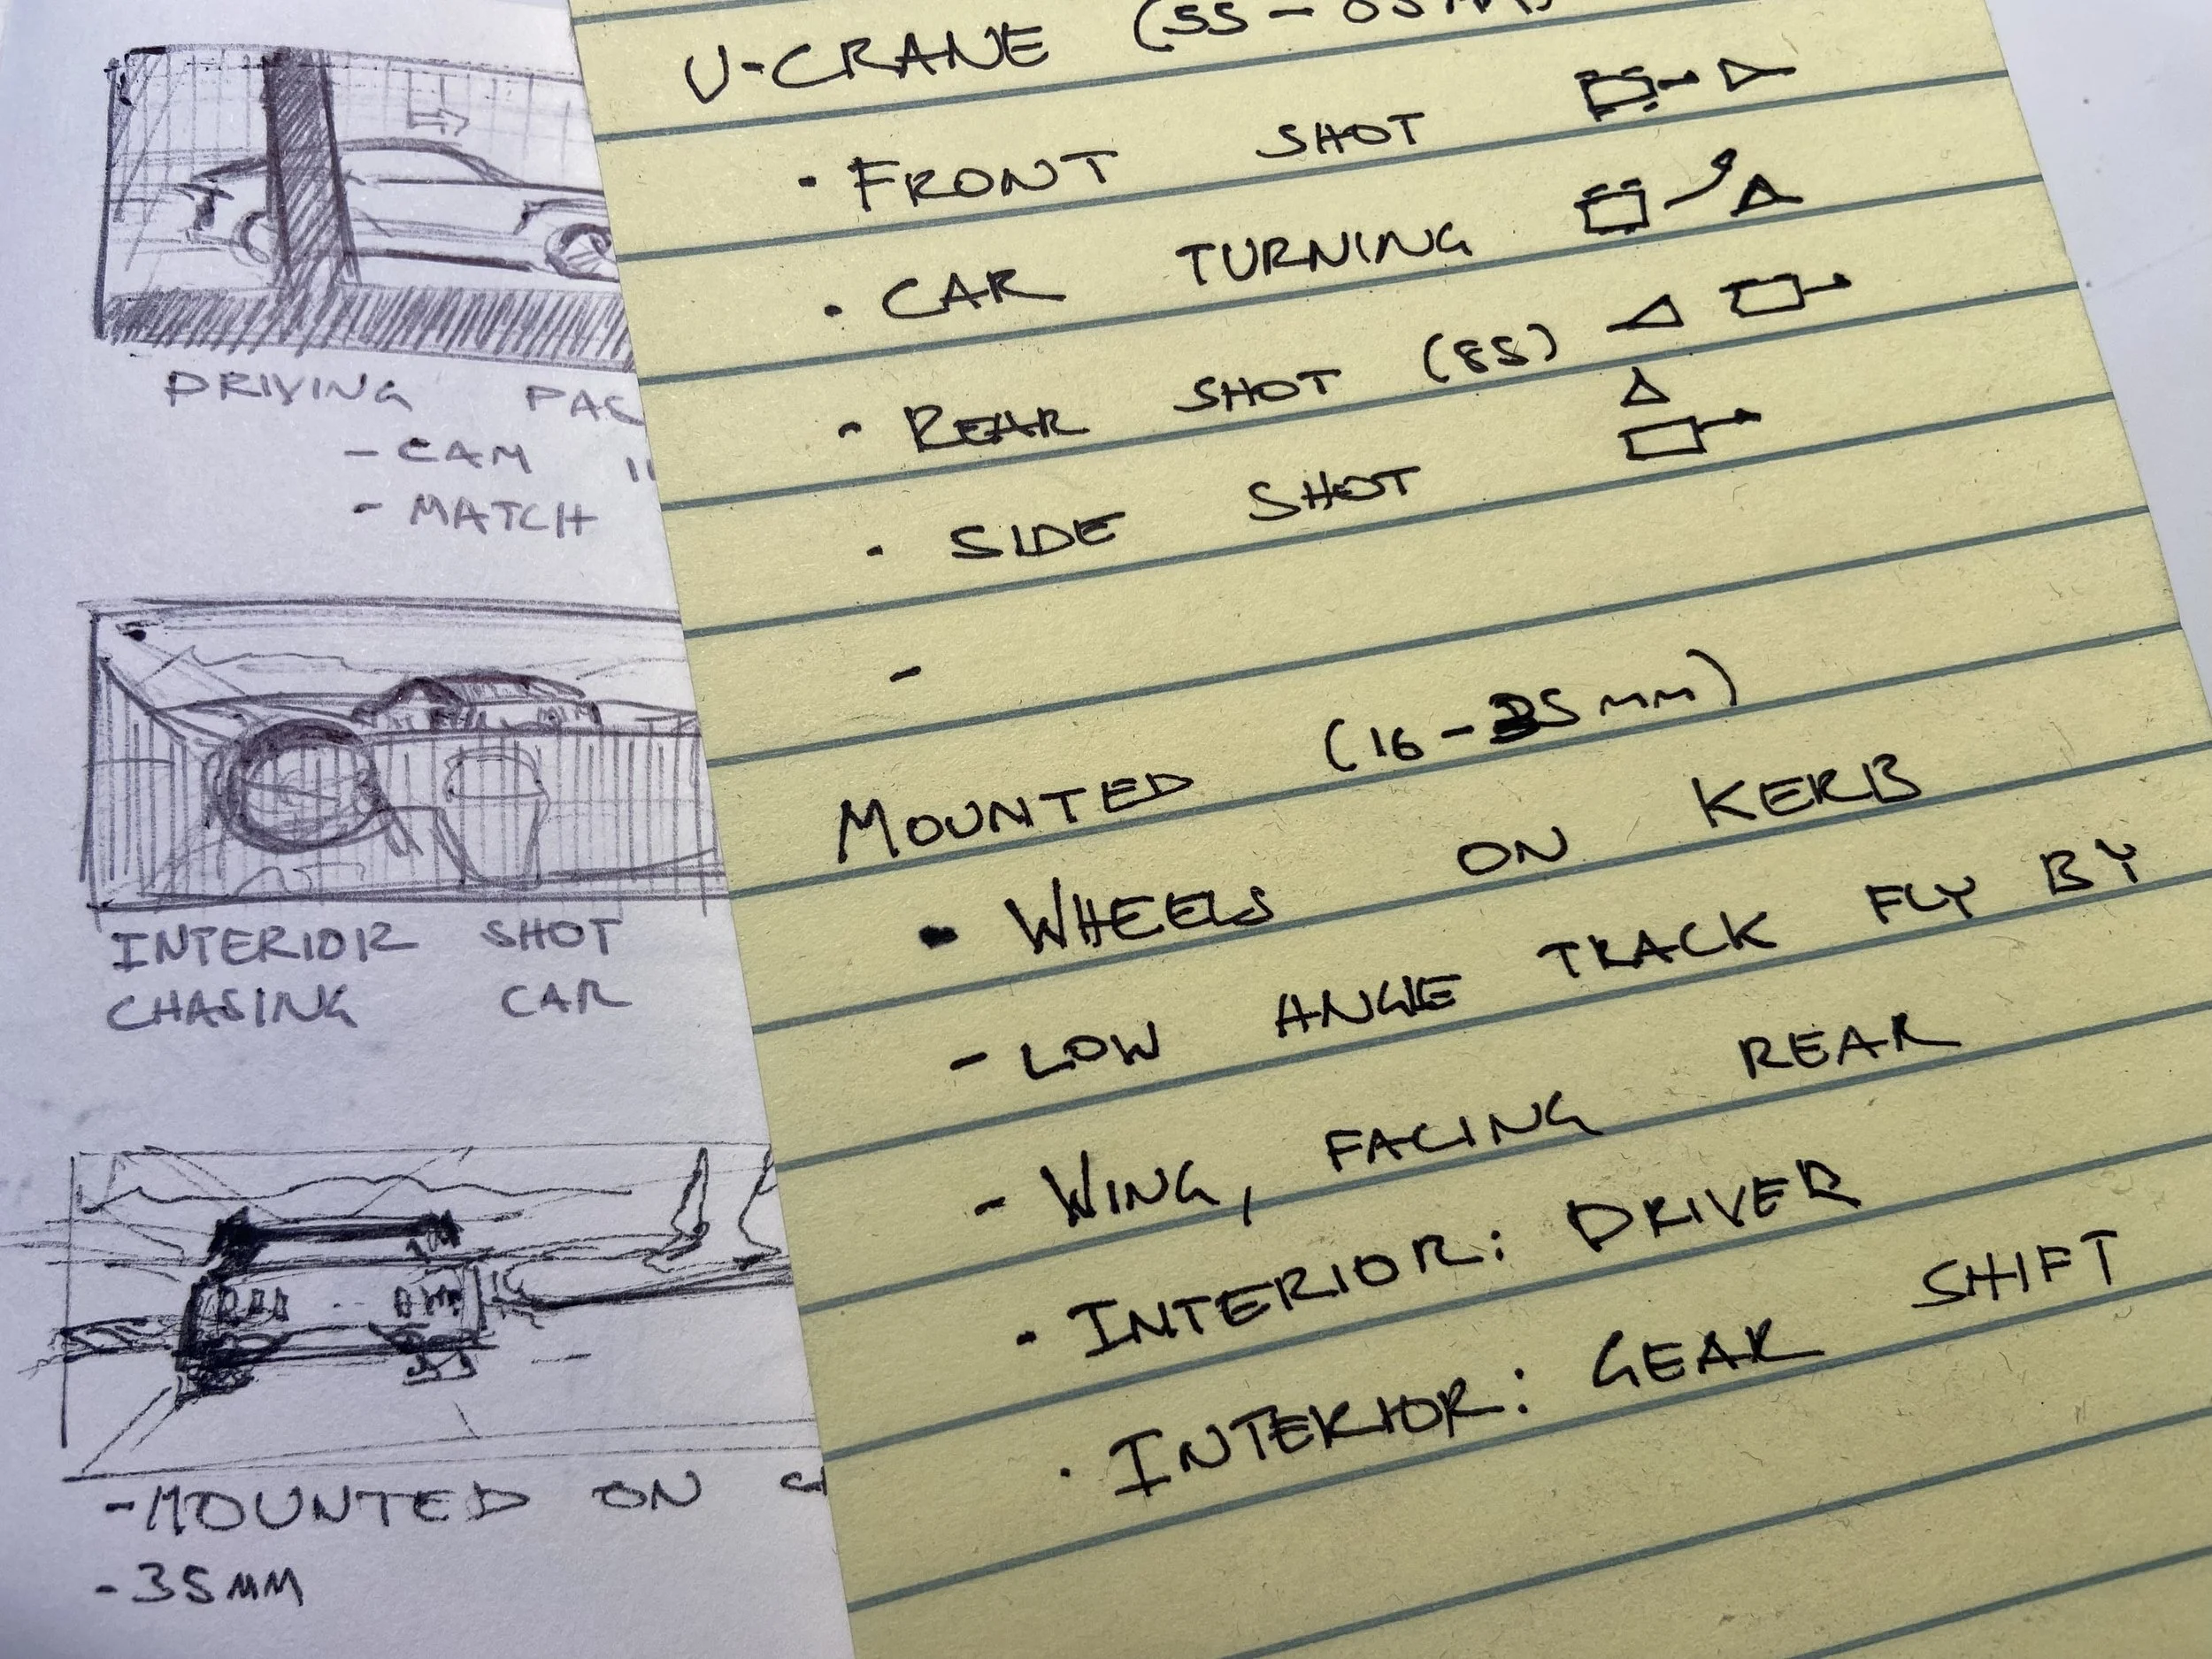 DRIVING
- CAM
- MATCH
INTERIOR SHOT
CHASING CAR
- MOUNTED ON
- 35MM
U-CRANE (55 -
• FRONT SHOT
• CAR TURNING
- REAR SHOT (85)
• SIDE SHOT
-
MOUNTED (16-35mm)
• WHEELS ON KERB
- LOW ANGLE TRACK FLY BY
- WING, FACING REAR
• INTERIOR: DRIVER
• INTERIOR: GEAR SHIFT